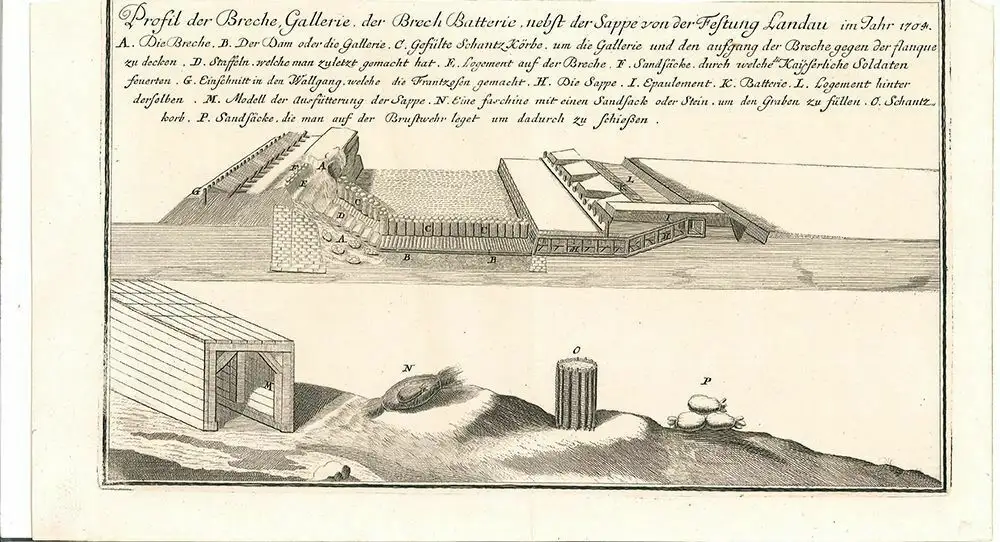 Profil der Breche, Gallerie, der Brech Batterie, nebst der Sappe von der Festung Landau im Jahr 1704.
A. Die Breche. B. Der Dam oder die Gallerie. C. Gefülte Schantz Körbe, um die Gallerie und den aufgang der Breche gegen der flanque
zu decken. D. Staffeln, welche man zuletzt gemacht hat. E. Logement auf der Breche. F. Sandsäcke, durch welche die Kaÿserliche Soldaten
feuerten. G. Einschnitt in den Wallgang, welche die Frantzosen gemacht. H. Die Sappe. I. Epaulement. K. Batterie. L. Logement hinter
derselben. M. Modell der Ausfütterung der Sappe. N. Eine faschine mit einen Sandsack oder Stein, um den Graben zu füllen. O. Schantz=
korb. P. Sandsäcke, die man auf der Brustwehr leget um dadurch zu schießen.
A
F
E
G
L
C
D
I
C C
A
H
H
B B
N
O
P
M